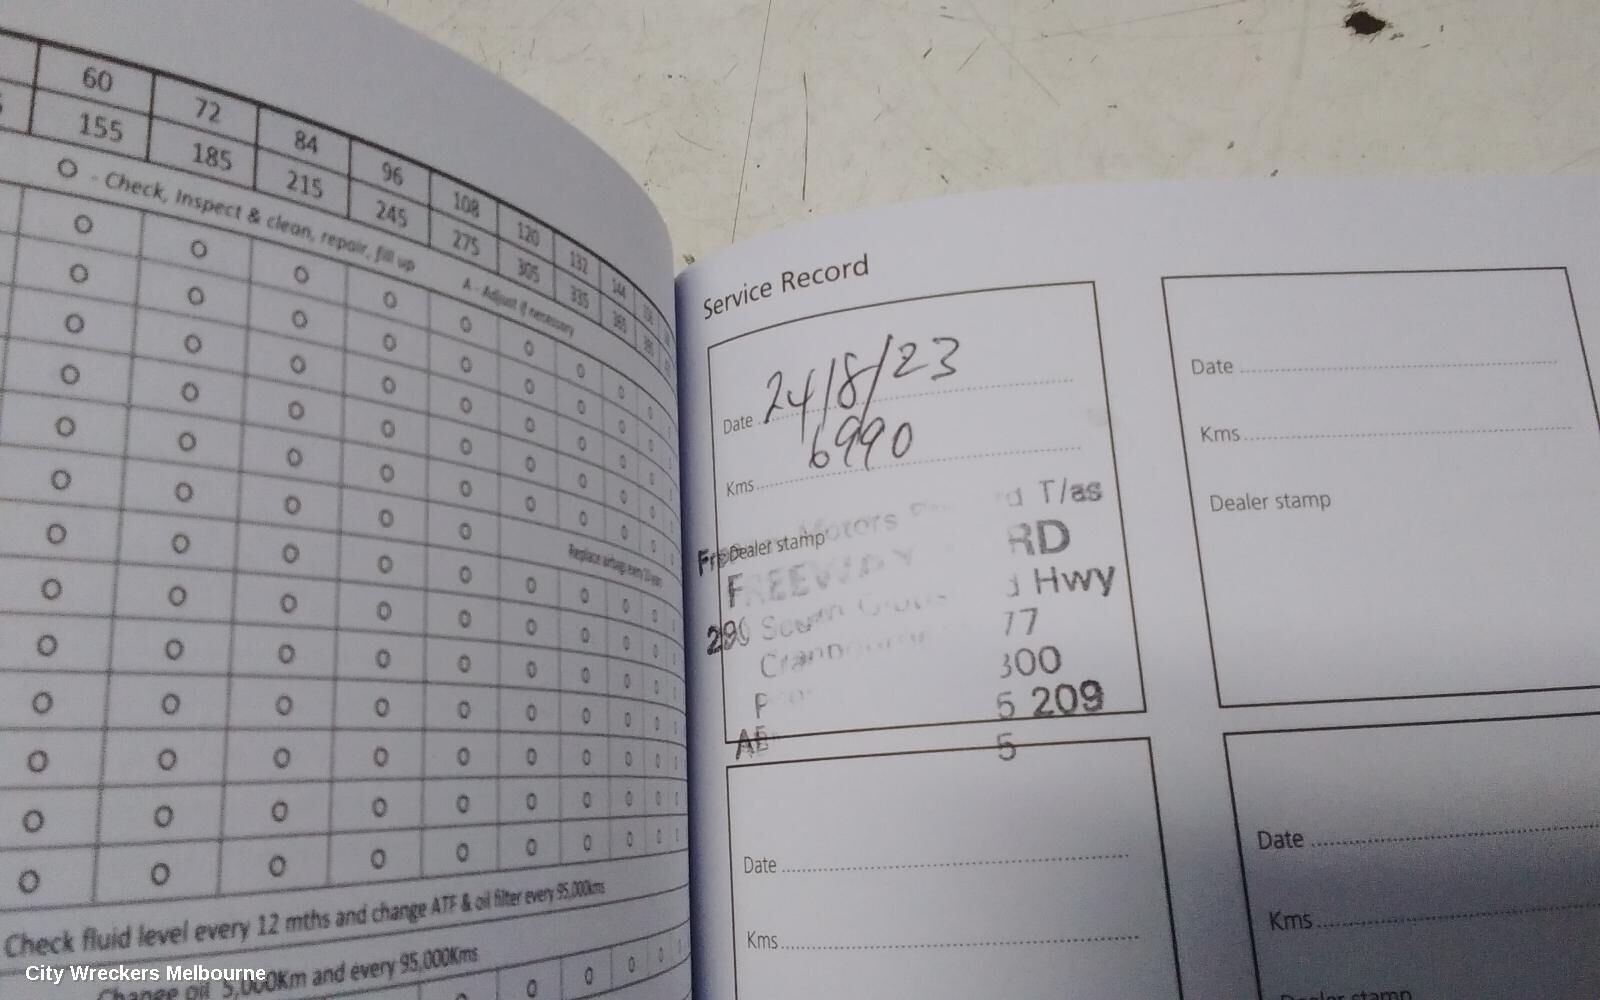 60 72 84 96 108 120 132 144
155 185 215 245 275 305 335 365
O - Check, Inspect & clean, repair, fill up A - Adjust if necessary
O O O O O O O O
O O O O O O O O
O O O O O O O O
O O O O O O O O
O O O O O O O O
O O O O O O O O
Replace airbags every 10 years
O O O O O O O O
O O O O O O O O
O O O O O O O O
O O O O O O O O
O O O O O O O O
O O O O O O O O
O O O O O O O O
Check fluid level every 12 mths and change ATF & oil filter every 95,000kms
Change oil 5,000Km and every 95,000Kms
Service Record
Date 24/8/23
Kms 6990
Dealer stamp
Motors T/as
FREEWAY RD
290 South Hwy
77
300
5 209
5
Date
Kms
Dealer stamp
Date
Kms
Date
Kms
Dealer stamp
City Wreckers Melbourne